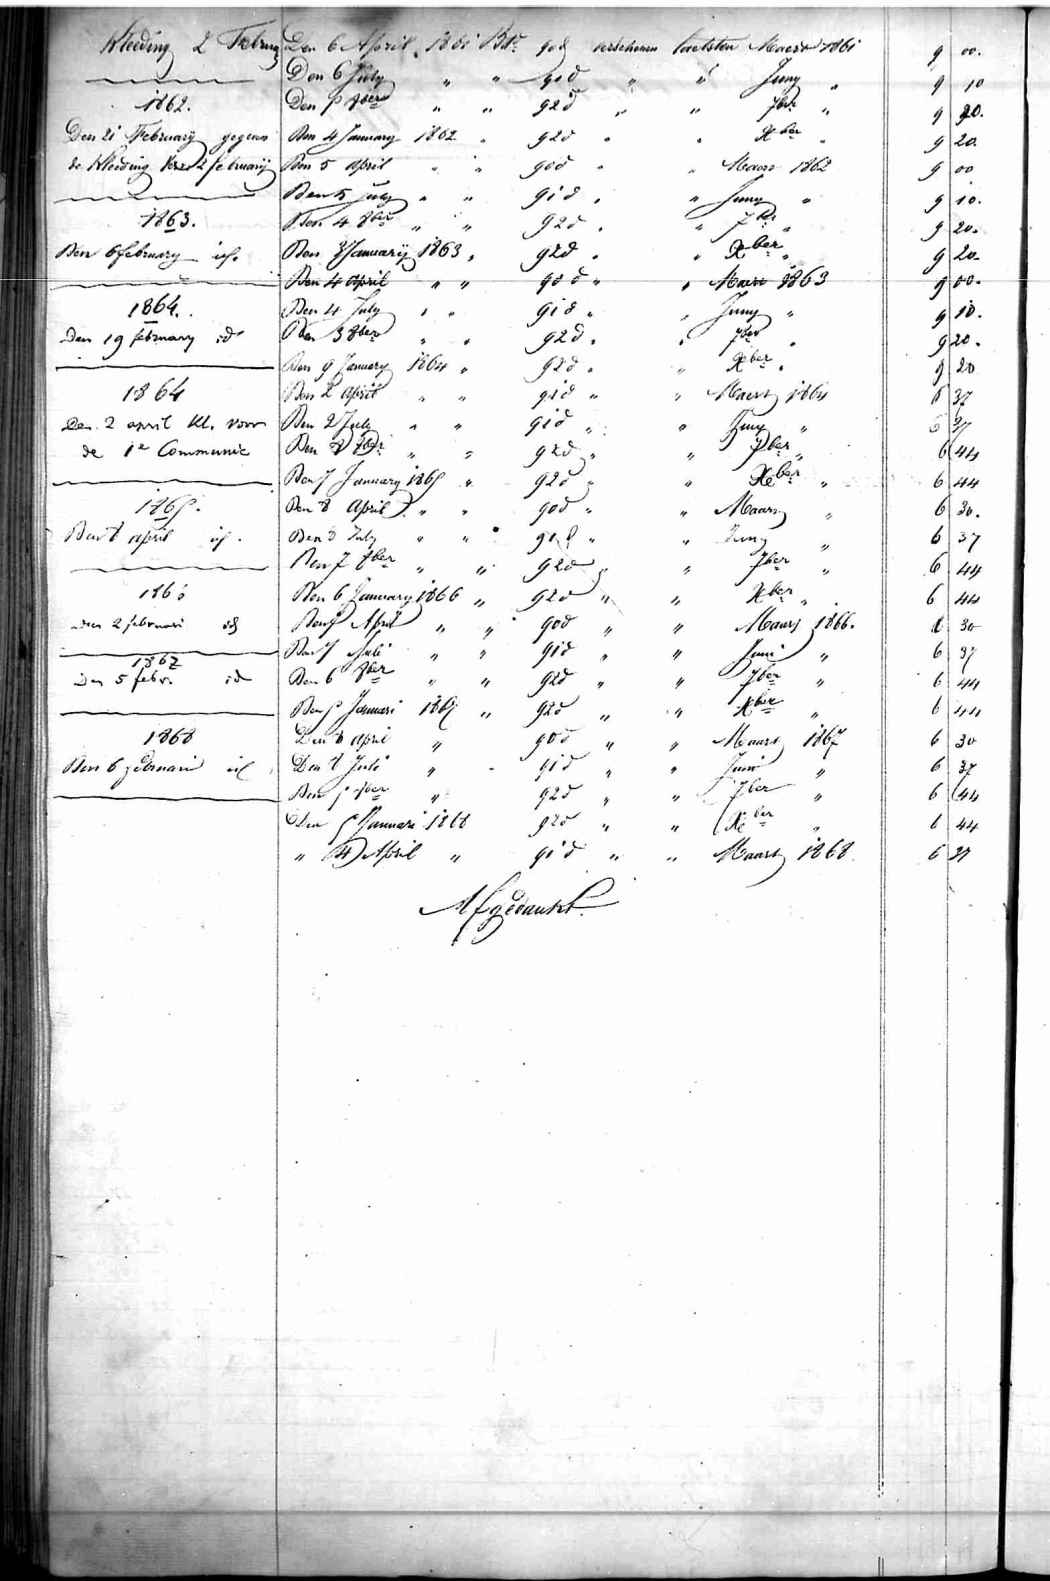 Kleeding 2 Febru
1862.
Den 21 February gegeven
de Kleeding 2 february
1863.
Den 6 february id.
1864.
den 19 february id
1864
Den 2 april Kl. voor
de 1e Communie
1865.
Den 8 april id.
1866
den 2 februari id
1867
den 5 febr. id
1868
Den 6 februari id
Den 6 April 1861 Bet. 90 d verschenen laetsten Maert 1861 9 00.
Den 6 July " " 91 d " " Juny " 9 10
Den 5 8ber " " 92 d " " 7ber " 9 20.
Den 4 January 1862 " 92 d " " Xber " 9 20.
Den 5 April " " 90 d " Maert 1862 9 00
Den 5 July " " 91 d " " Juny " 9 10.
Den 4 8ber " " 92 d " " 7ber " 9 20.
Den 3 January 1863 " 92 d " " Xber " 9 20.
Den 4 April " " 90 d " " Maert 1863 9 00.
Den 4 July " " 91 d " " Juny " 9 10.
Den 3 8ber " " 92 d " " 7ber " 9 20.
Den 9 January 1864 " 92 d " " Xber " 9 20
Den 2 April " " 91 d " " Maert 1864 6 37
Den 2 July " " 91 d " " Juny " 6 37
Den 8ber " " 92 d " " 7ber " 6 44
Den 7 January 1865 " 92 d " " Xber " 6 44
Den 8 April " " 90 d " " Maart " 6 30.
Den 8 July " " 91 d " " Juny " 6 37
Den 7 8ber " " 92 d " " 7ber " 6 44
Den 6 January 1866 " 92 d " " Xber " 6 44
Den 7 April " " 90 d " " Maart 1866. 6 30
Den 7 Juli " " 91 d " " Juni " 6 37
Den 6 8ber " " 92 d " " 7ber " 6 44
Den 5 Januari 1867 " 92 d " " Xber " 6 44
Den 6 April " 90 d " " Maart 1867 6 30
Den Juli " 91 d " " Juni " 6 37
Den 5 8ber " 92 d " " 7ber " 6 44
Den Januari 1868 92 d " " Xber " 6 44
" 4 April " 91 d " " Maart 1868. 6 37
Afgedankt.